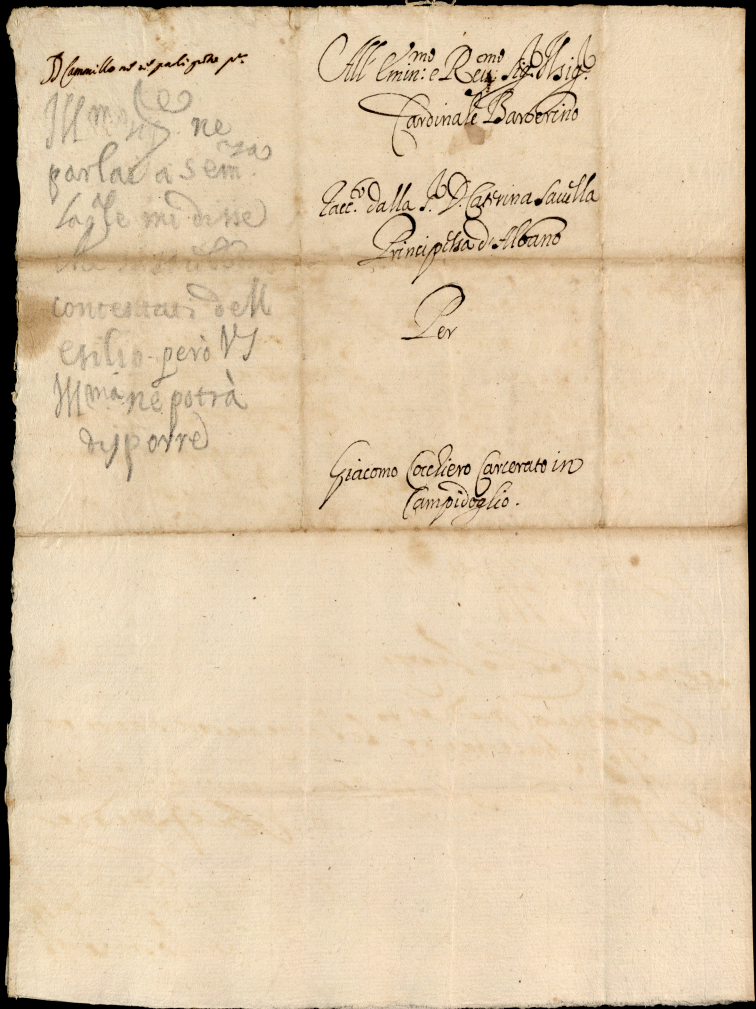 D Cammillo
Ill.mo Sig.re ne
parlai a S em.za
la q.le mi disse
che
contentati dell
esilio però VS
Ill.ma ne potrà
disporre
All' Emin:mo e Reu:mo Sig.r Il Sig.r
Cardinale Barberino
Racc.to dalla S.ra D. Caterina Sauella
Principessa d'Albano
Per
Giacomo Cocchiero Carcerato in
Campidoglio.